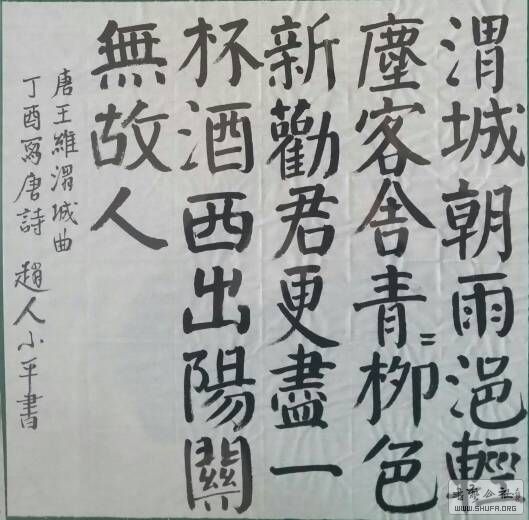 渭城朝雨浥輕
塵客舍青〻柳色
新勸君更盡一
杯酒西出陽關
無故人
唐王維渭城曲
丁酉寫唐詩 趙人小平書
WWW.SHUFA.ORG